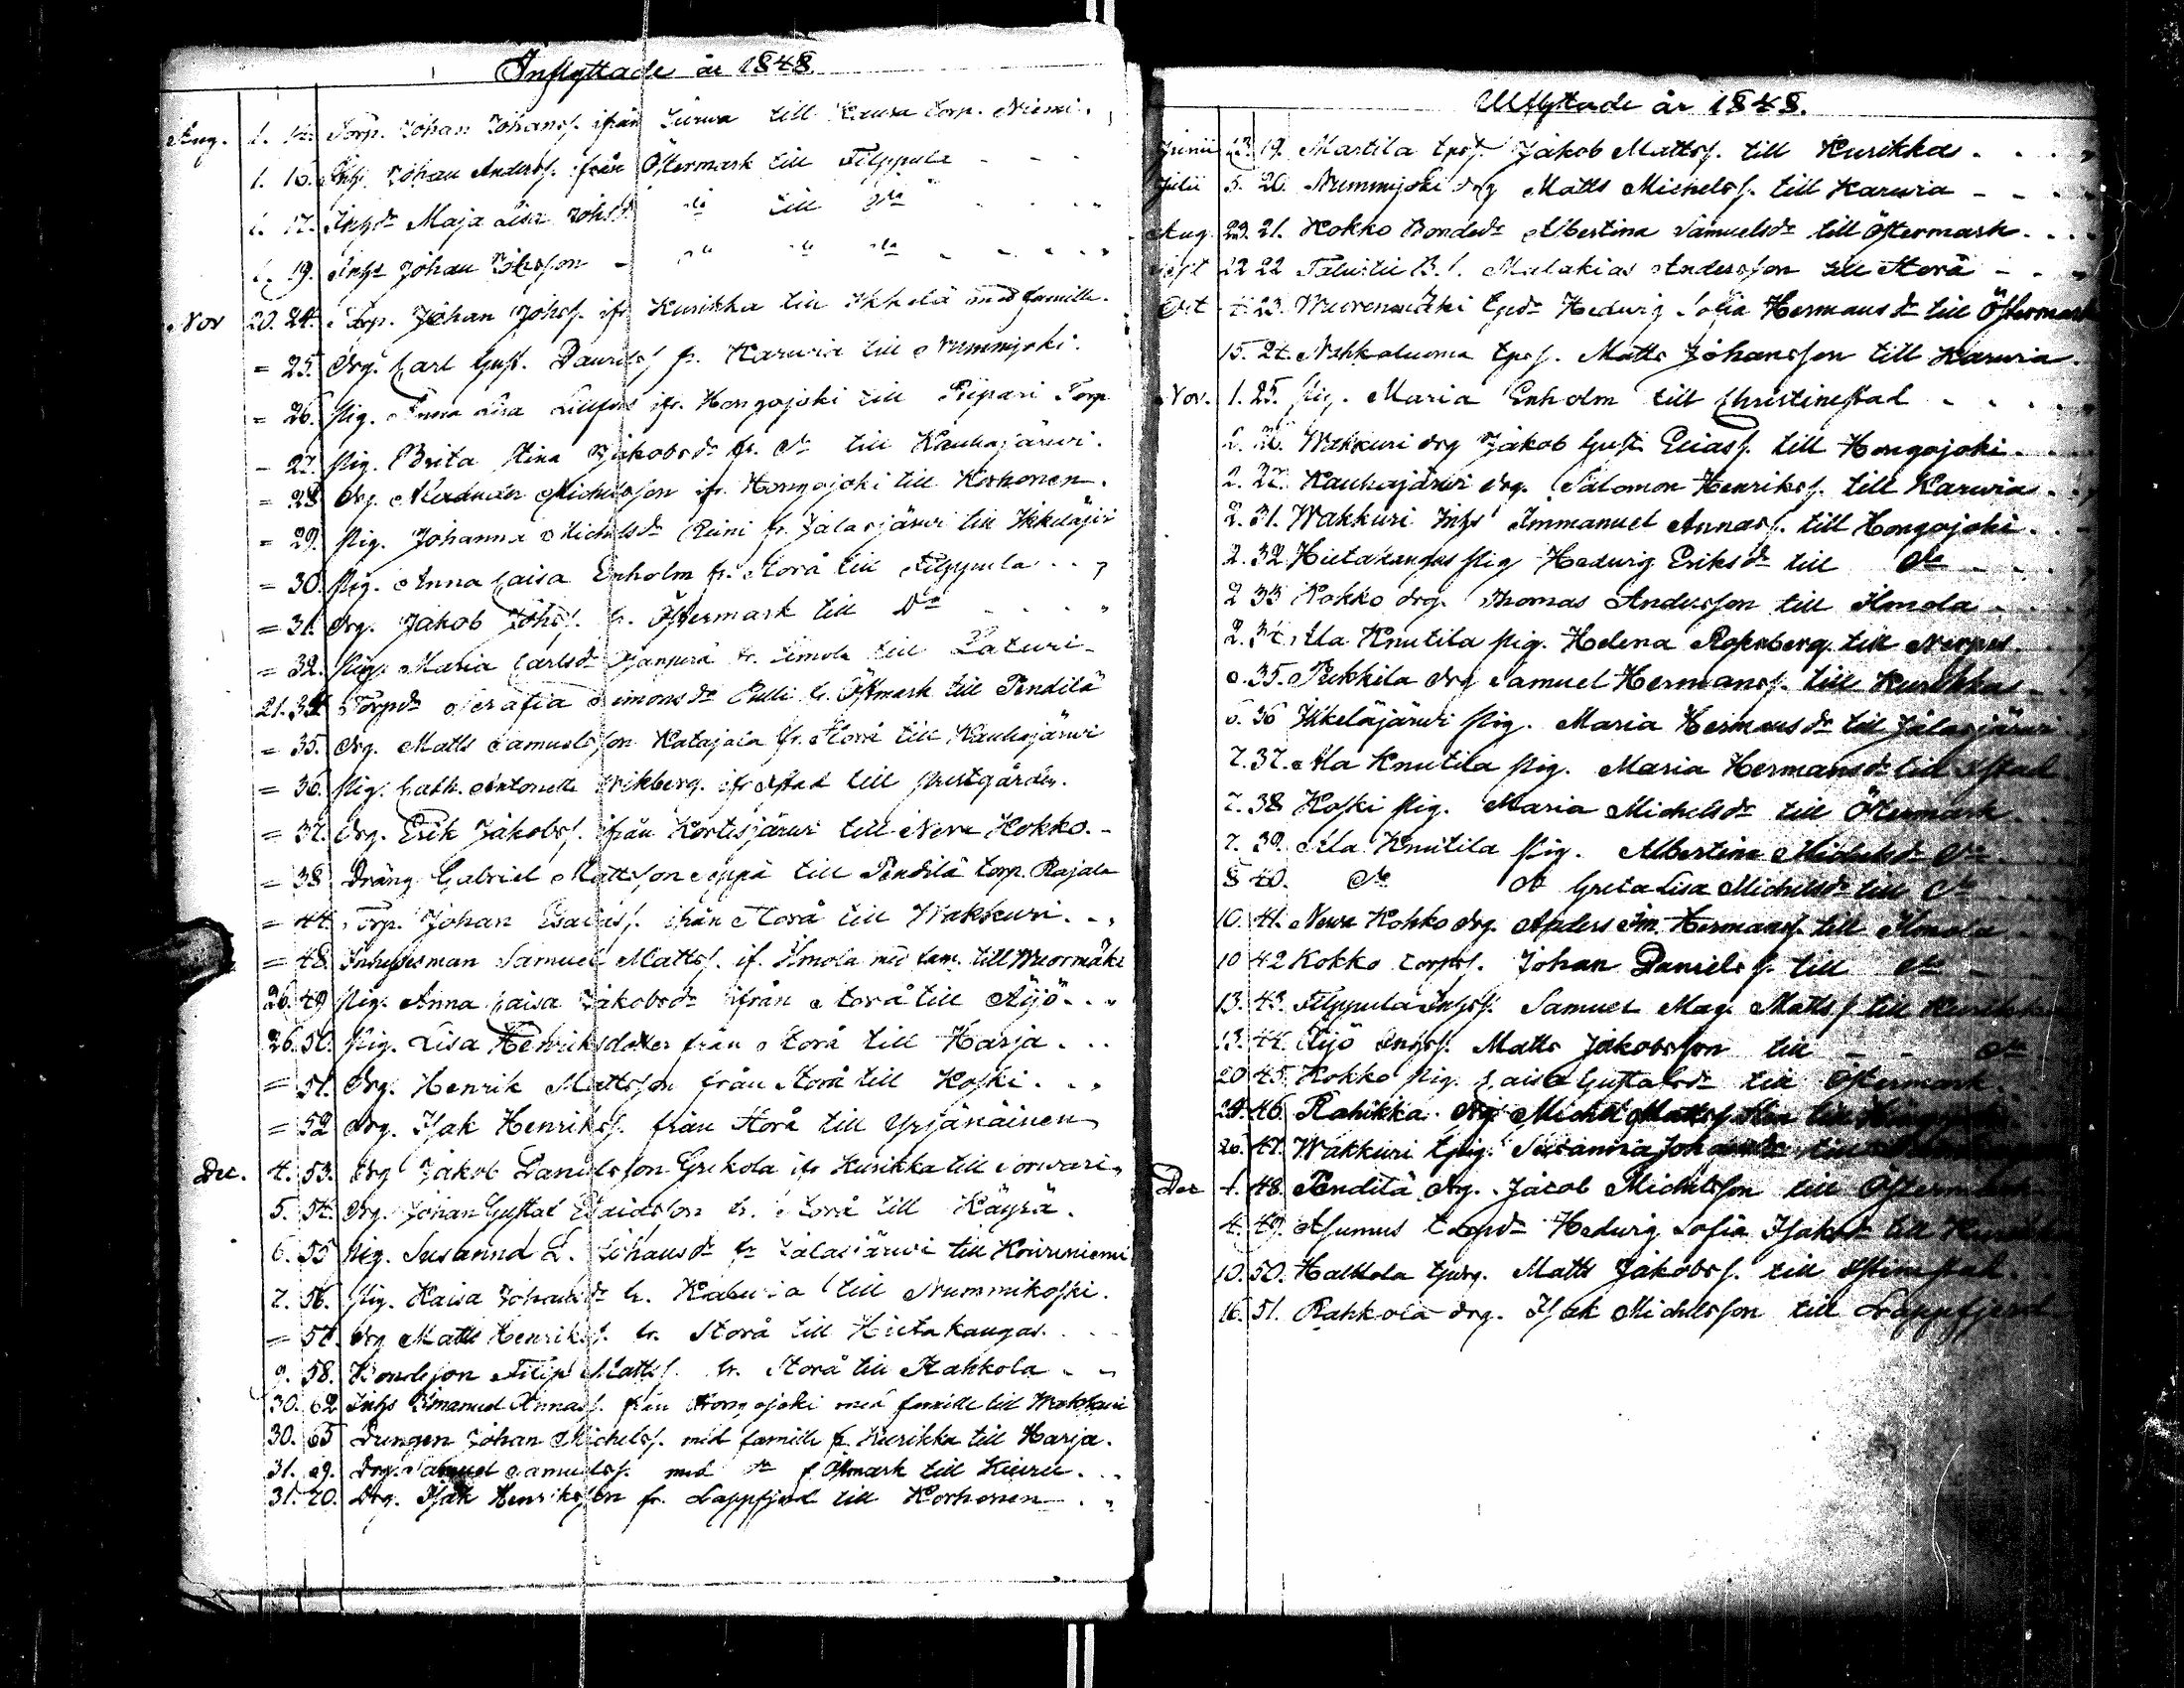 Inflyttade år 1848.
Aug. 1. 14. Torp. Johan Johanss. ifrån Jurva till Kausa torp. Niemi.
1. 16. Inhs Johan Anderss. från Östermark till Filppula - - -
1. 17. Inhsdr Maja Lisa Johsdr do till do - - -
1. 19. Inhs Johan Johsson - do do do - - -
Nov 20. 24. Torp. Johan Johss. ifr Kurikka till Ikkelä med famille.
= 25. drg. Carl Gust. Daniels. fr. Karvia till Nummijoki.
= 26. pig. Anna Lisa Lillfors ifr. Hongojoki till Piipari Torp
= 27. pig. Brita Stina Jakobsdr fr. do till Kauhajärwi.
= 28. drg. Michelsson ifr. Hongojoki till Korhonen.
= 29. pig. Johanna Michelsdr fr. Jalasjärwi till Ikkeläjärwi
= 30. pig. Anna Caisa Enholm fr. Storå till Filppula - - -
= 31. drg. Jakob Johss. fr. Östermark till Do - - -
= 32. pig. Maria Carlsdr fr. Ilmola till Laturi -
21. 34 Torpdr Serafia Simonsdr fr. Östmark till Pendilä
= 35. drg. Matts Samuelsson Katajala fr. Storå till Kauhajärwi
= 36. pig. Cath. Antonette Wikberg. ifr. Xstad till prestgården.
= 37. drg. Erik Jakobss. ifrån Kortesjärwi till Neva Kokko. -
= 38 Dräng Gabriel Mattsson Seppä till Pendilä torp. Rajala
= 44. Torp. Johan Esaiass. ifrån Storå till Wakkuri. - -
= 48. Inhysesman Samuel Mattss. if. Ilmola med fam. till Wuormäki
26. 49 pig. Anna Caisa Jakobsdr ifrån Storå till Äijö - - -
26. 50. pig. Lisa Henriksdotter från Storå till Harja . . .
= 51. drg. Henrik Mattsson från Storå till Koski . . .
= 52 drg. Isak Henrikss. från Storå till Yrjänäinen
Dec. 4. 53. drg Jakob Danielsson Grekola ifr Kurikka till Sorvari.
5. 54. drg. Johan Gustaf fr. Storå till Käyrä.
6. 55 pig. Susanna L. Johansdr fr Jalasjärwi till Koivuniemi
7. 56. pig. Kaisa Johansdr fr. Karvia till Nummikoski.
= 57. drg Matts Henrikss. fr. Storå till Hietakangas. - -
9. 58. Bondeson Filip Mattss. fr. Storå till Rahkola - -
30. 62 Inhs Imanuel Annass. från Hongojoki med famille till Wakkuri
30. 65 Drengen Johan Michelss. med famille fr. Kurikka till Harja.
31. 69. Drg. Samuel Samuelss. med do f Östmark till Kiuru. . .
31. 70. Drg. Isak Henriksson fr. Lappfjerd till Korhonen - . .
Utflyttade år 1848.
Junii 13. 19. Martila tpss. Jakob Mattss. till Kurikka . . .
Julii 5. 20. Nummijoki drg Matts Michelss. till Karwia - - -
Aug. 29. 21. Kokko Bondedr Albertina Samuelsdr till Östermark . . .
Sept 22 22 B.s. Malakias Andersson till Storå - - -
Oct 23. Wuorenmäki tpdr Hedwig Sofia Hermansdr till Östermark
15. 24. Nahkaluoma tpss. Matts Johansson till Karwia.
Nov. 1. 25. pig. Maria Enholm till Christinestad - - -
2. 26. Wakkuri drg Jakob Gust. Eliass. till Hongojoki. - -
2. 27. Kauhajärwi drg. Salomon Henrikss. till Karwia . .
2. 31. Wakkuri Inhs Immanuel Annass. till Hongojoki. . .
2. 32 Hietakangas pig Hedwig Eriksdr till do - - -
2 33 Kokko drg. Thomas Andersson till Ilmola - - -
2. 34. Ala Knutila pig. Helena Rosenberg till Nerpes.
6. 35. Pukkila drg Samuel Hermanss. till Kurikka - -
6. 36 Ikkeläjärwi pig. Maria Hermansdr till Jalasjärwi
7. 37. Ala Knutila pig. Maria Hermansdr till Xstad
7. 38 Koski pig. Maria Michelsdr till Östermark - -
7. 39. Ala Knutila pig. Albertina Michelsdr Do
8 40. Do do Greta Lisa Michelsdr till Do
10. 41. Neva Kokko drg. Anders Im. Hermanss. till Ilmola
10 42 Kokko torpss. Johan Danielss. till do
13. 43. Filppula Inhss. Samuel Mag. Mattss. till Kurikka
13. 44. Äijö Inhss. Matts Jakobsson till - - do
20 45. Kokko pig. Caisa Gustafsdr till Östermark.
24. 46. Rahikka drg Michel Mattss. till
26. 47. Wakkuri tpig. Susanna Johansdr till
Dec 4. 48. Pendilä drg. Jacob Michelsson till Östermark
4. 49. Asumus torpdr Hedwig Sofia Isaksdr till
10. 50. Halkola tpdrg. Matts Jakobss. till Xstinestad.
16. 51. Rahkola drg. Isak Michelsson till Lappfjerd